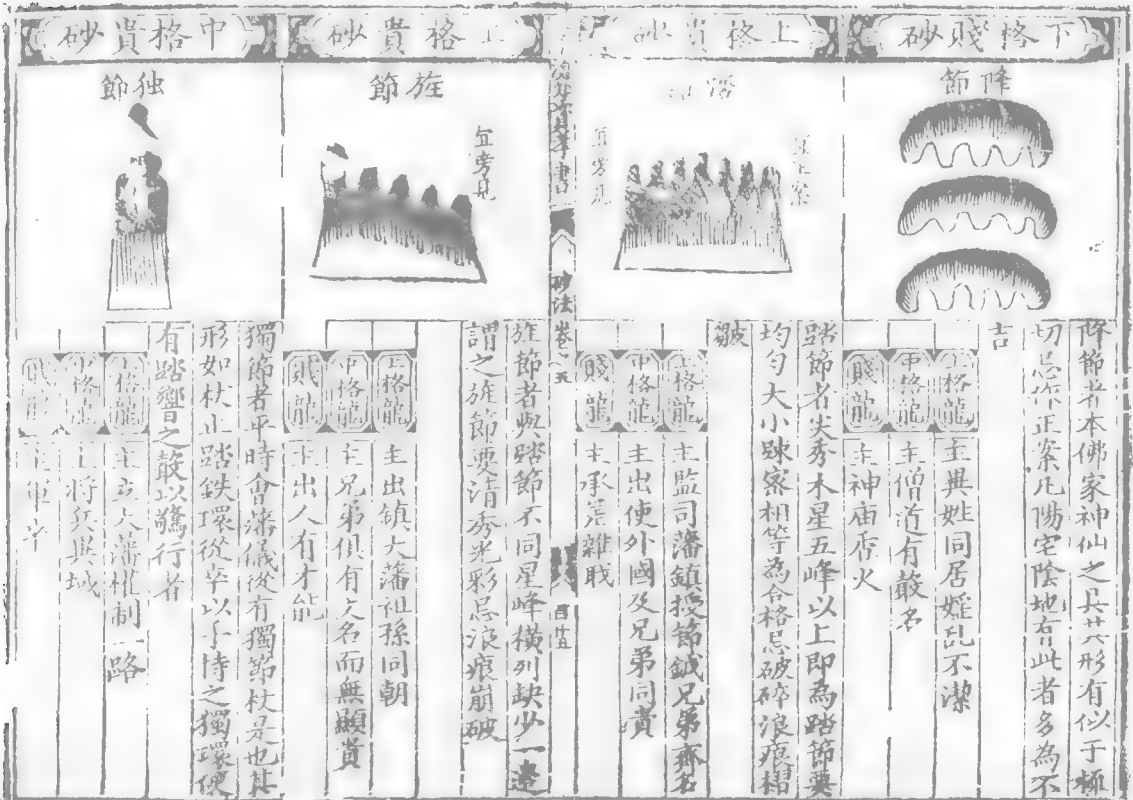 下格賤砂
降節
降節者本佛家神仙之具其形有似于極
切忌作正案凡陽宅陰地有此者多為不
吉
上格龍 主異姓同居婬乱不潔
中格龍 主僧道有聲名
賤龍 主神庙香火
上格貴砂
踏節
宜正案
宜旁見
踏節者尖秀木星五峰以上即為踏節要
均勻大小踈密相等為合格忌破碎浪痕摺
皺
上格龍 主監司藩鎮授節鉞兄弟齊名
中格龍 主出使外國及兄弟同貴
賤龍 主承差雜職
砂法 卷之五
上格貴砂
旌節
宜旁見
旌節者與踏節不同星峰橫列缺少一邊
謂之旌節要清秀光彩忌浪痕崩破
上格龍 主出鎮大藩祖孫同朝
中格龍 主兄弟俱有文名而無顯貴
賤龍 主出人有才能
中格貴砂
独節
獨節者平時會藩儀從有獨節杖是也其
形如杖止踏鉄環從卒以手恃之獨環使
有踏響之聲以驚行者
上格龍 主立大藩權制一路
中格龍 主將兵異域
賤龍 主軍卒